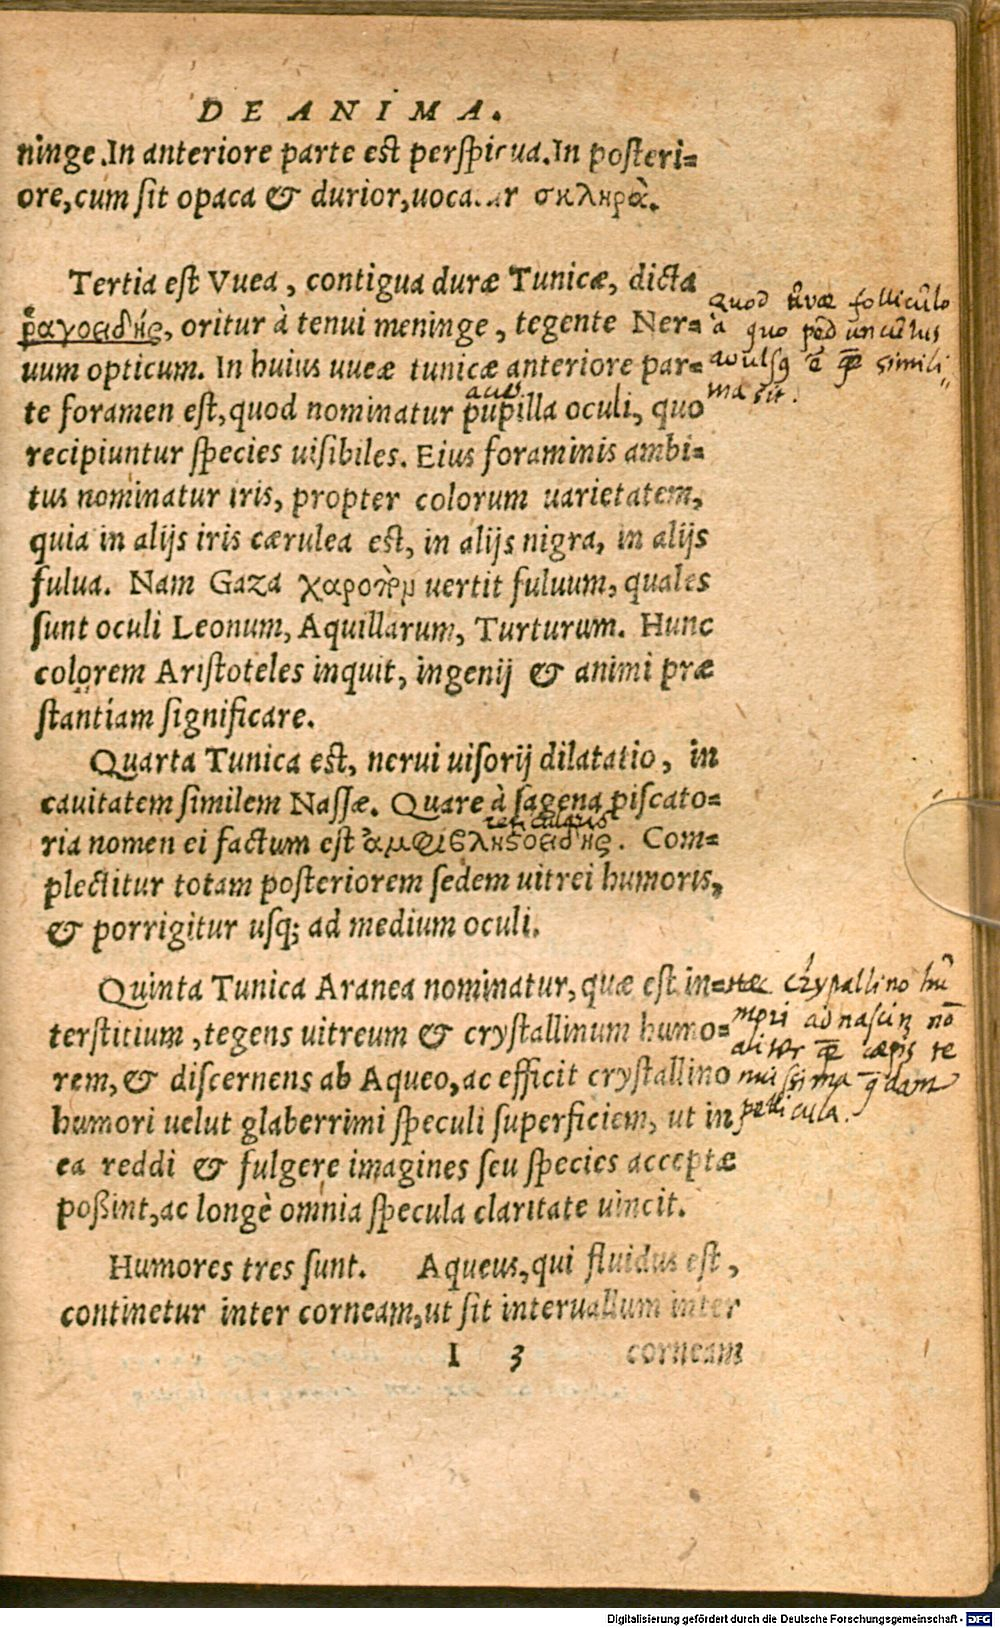 DE ANIMA.
ninge. In anteriore parte est perspicua. In posteri=
ore, cum sit opaca & durior, uocatur σκληρά.
Tertia est Vuea, contigua duræ Tunicæ, dicta
ῥαγοειδής, oritur à tenui meninge, tegente Ner=
uum opticum. In huius uueæ tunicæ anteriore par=
te foramen est, quod nominatur pupilla oculi, quo
recipiuntur species uisibiles. Eius foraminis ambi=
tus nominatur iris, propter colorum uarietatem,
quia in alijs iris cærulea est, in alijs nigra, in alijs
fulua. Nam Gaza χαροπὸν uertit fuluum, quales
sunt oculi Leonum, Aquillarum, Turturum. Hunc
colorem Aristoteles inquit, ingenij & animi præ
stantiam significare.
quod uvæ folliculo
à quo pedunculus
avulsq
simili
ma sit.
Quarta Tunica est, nerui uisorij dilatatio, in
cauitatem similem Nassæ. Quare à sagena piscato=
reticularis
ria nomen ei factum est ἀμφιβληστροειδής. Com=
plectitur totam posteriorem sedem uitrei humoris,
& porrigitur usq; ad medium oculi.
Quinta Tunica Aranea nominatur, quæ est in=
terstitium, tegens uitreum & crystallinum humo=
rem, & discernens ab Aqueo, ac efficit crystallino
humori uelut glaberrimi speculi superficiem, ut in
ea reddi & fulgere imagines seu species acceptæ
poßint, ac longè omnia specula claritate uincit.
hæc chrypallino hu
mori adnascitur nō
aliter cæpis te
nuissima qdam
pellicula.
Humores tres sunt. Aqueus, qui fluidus est,
continetur inter corneam, ut sit interuallum inter
I 3 corneam
Digitalisierung gefördert durch die Deutsche Forschungsgemeinschaft - DFG